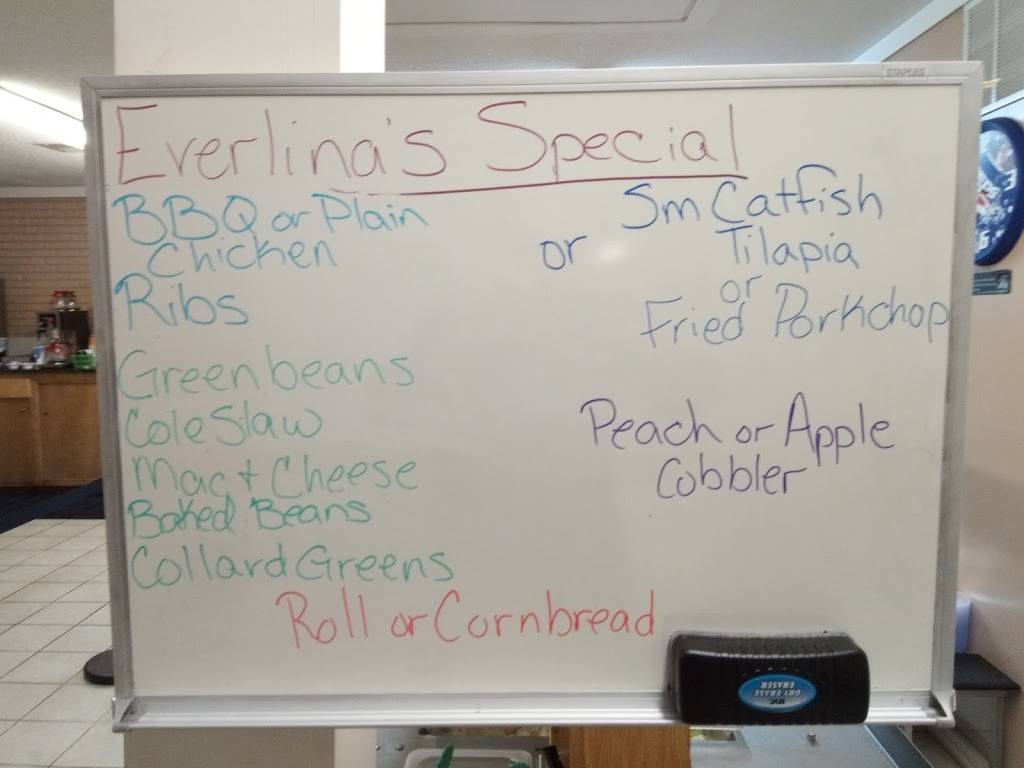 STAPLES
Everlina's Special
BBQ or Plain
Chicken
Ribs
or
Sm Catfish
Tilapia
or
Fried Porkchop
Greenbeans
Cole Slaw
Mac + Cheese
Baked Beans
Collard Greens
Peach or Apple
Cobbler
Roll or Cornbread
DRY ERASE
ERASER